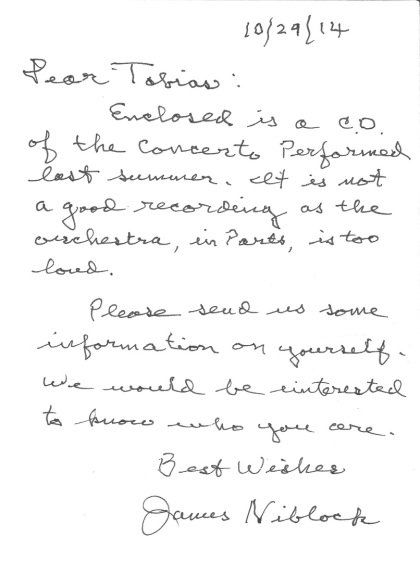 10/29/14
Dear Tobias:
Enclosed is a C.D.
of the Concerto Performed
last summer. It is not
a good recording as the
orchestra, in Parts, is too
loud.
Please send us some
information on yourself.
We would be interested
to know who you are.
Best Wishes
James Niblock